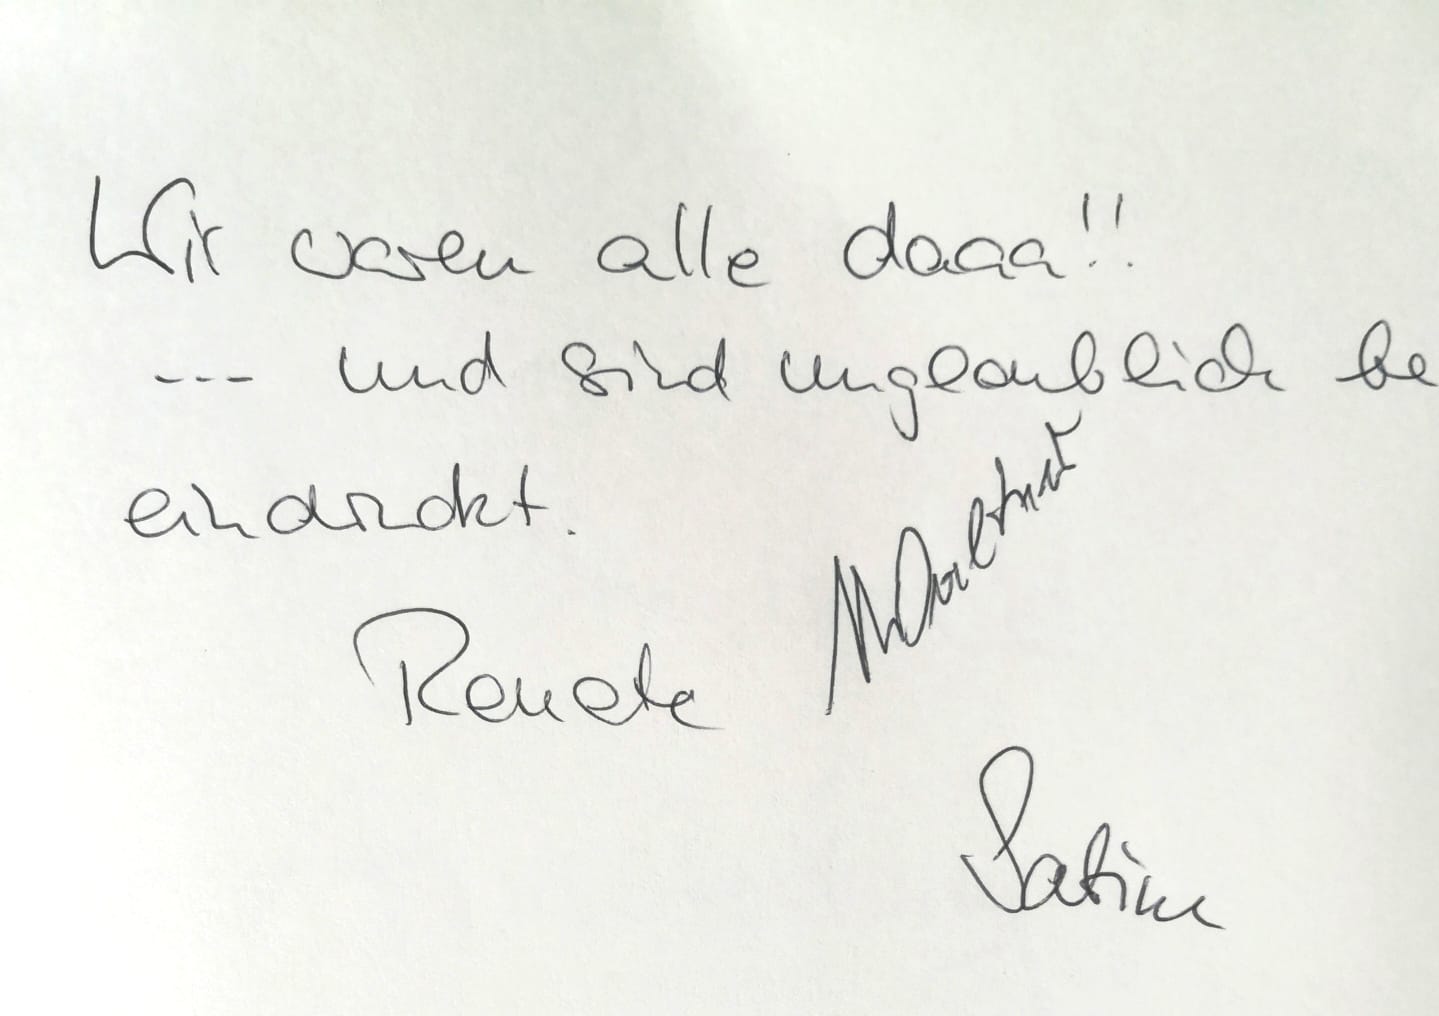 Wir waren alle daaa!!
--- und sind unglaublich be
eindruckt.
Renate
Sabine